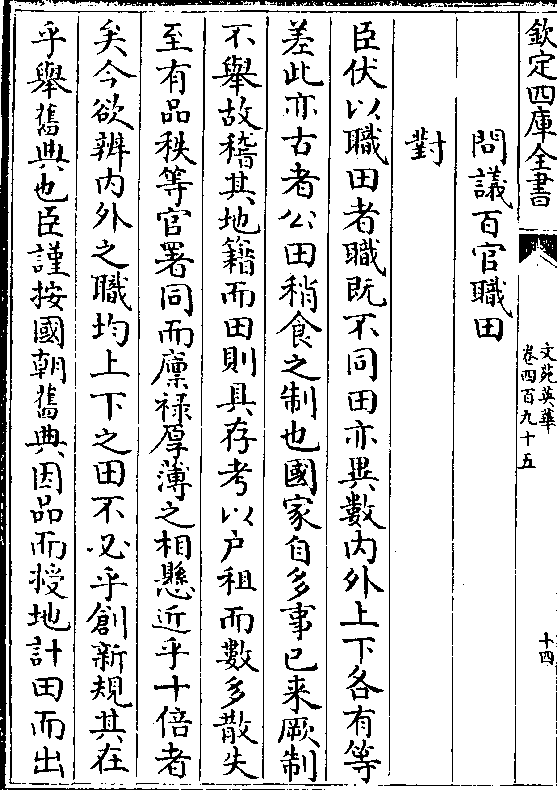 欽定四庫全書
文苑英華
卷四百九十五
十四
問議百官職田
對
臣伏以職田者職既不同田亦異數内外上下各有等
差此亦古者公田稍食之制也國家自多事已来厥制
不舉故稽其地籍而田則具存考以户租而數多散失
至有品秩等官署同而廪禄厚薄之相懸近乎十倍者
矣今欲辨内外之職均上下之田不必乎創新規其在
乎舉舊典也臣謹按國朝舊典因品而授地計田而出